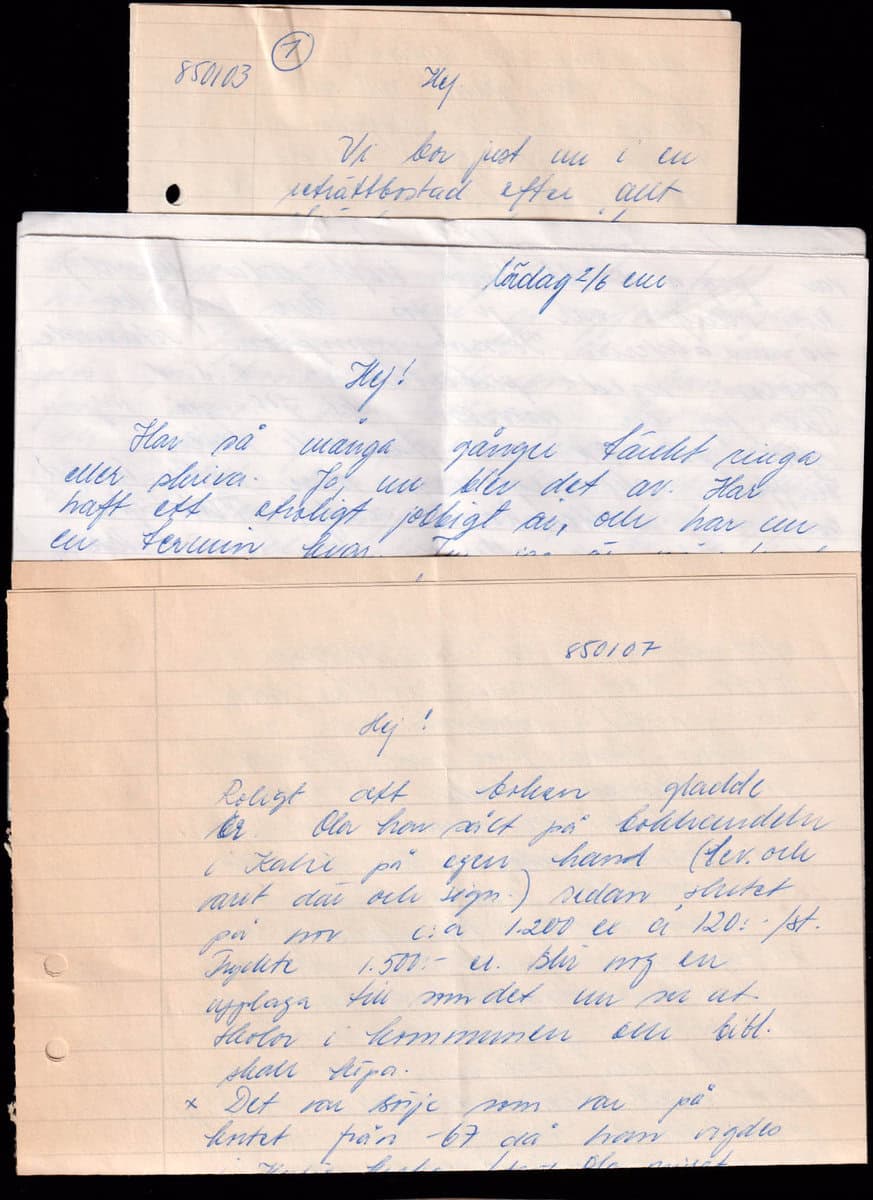 850103 ①
Hej
Vi bor just nu i en
reträttbostad efter allt
lördag 2/6 em
Hej!
Har så många gånger tänkt ringa
eller skriva. Ja nu blev det av. Har
haft ett otroligt jobbigt år, och har nu
en termin kvar.
850107
Hej!
Roligt att boken gladde
er. Ola har sålt på bokhandeln
i Katr. på egen hand (lev. och
varit där och sign.) sedan slutet
på nov c:a 1.200 ex á 120:-/st.
Tryckte 1.500:- ex. Blir nog en
upplaga till som det nu ser ut.
Skolor i kommunen och bibl.
skall köpa.
x Det var Börje som var på
kortet från -67 då han vigdes